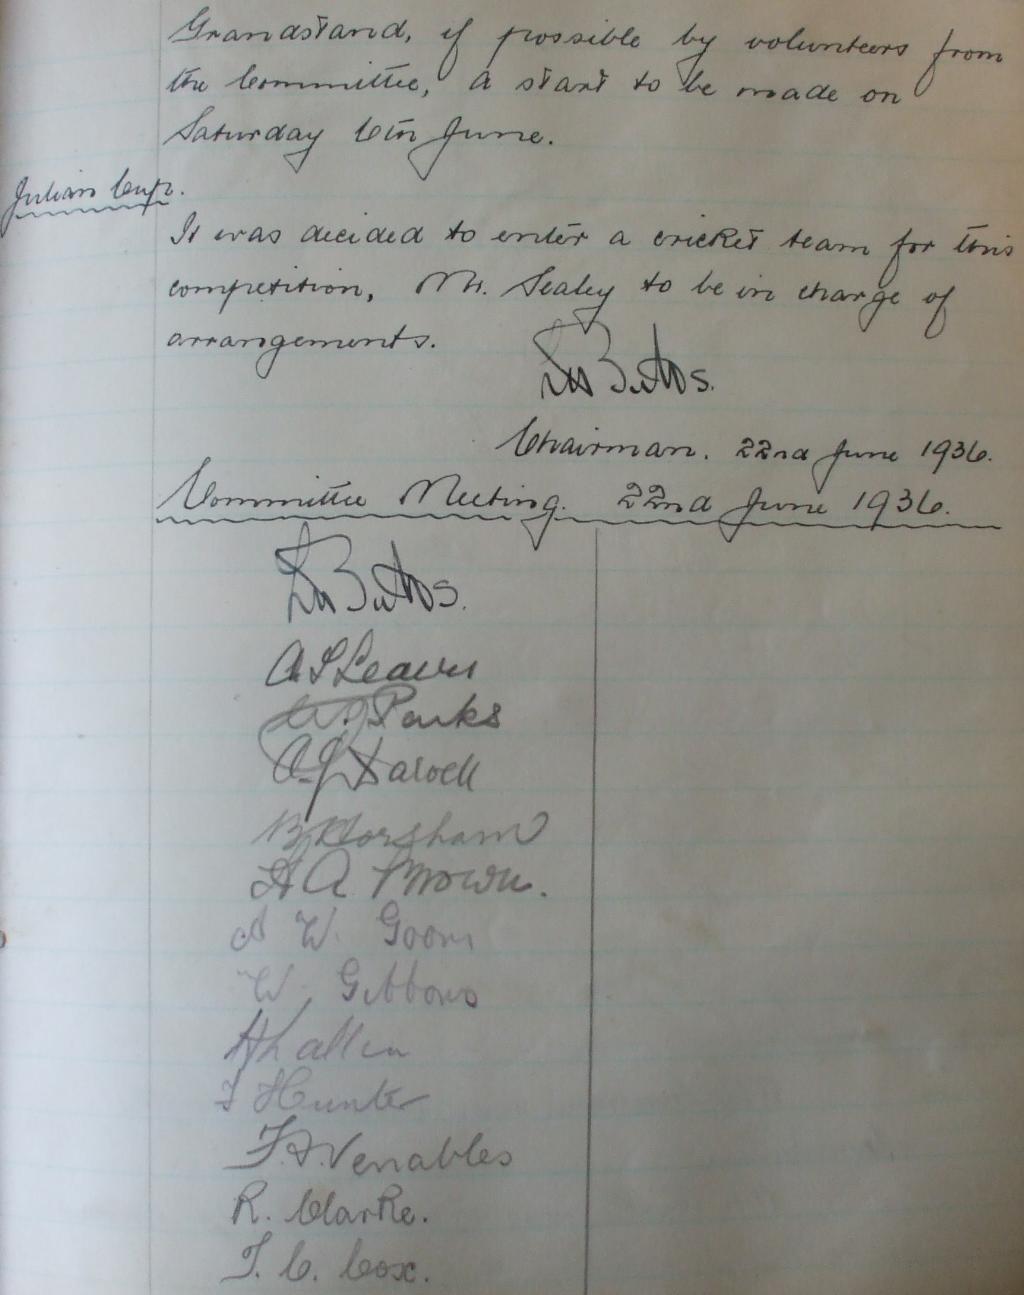 Grandstand, if possible by volunteers from
the Committee, a start to be made on
Saturday 6th June.
Julian Cup.
It was decided to enter a cricket team for this
competition, Mr. Sealey to be in charge of
arrangements.
Chairman. 22nd June 1936.
Committee Meeting. 22nd June 1936.
A. S. Leaver
Parks
B Horsham
H A Brown.
W. Goom
W. Gibbons
H L Allen
Hunter
F. J. Venables
R. Clarke.
T. C. Cox.